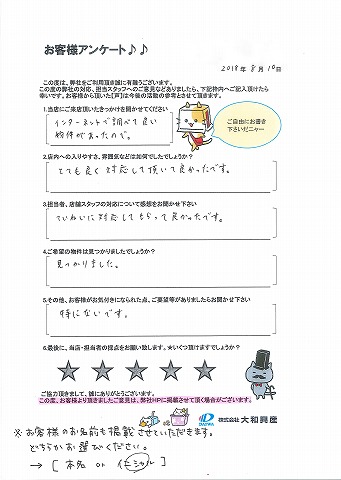 お客様アンケート♪♪
2018年8月10日
この度は、弊社をご利用頂き誠に有難うございます。
この度の弊社の対応、担当スタッフへのご意見などありましたら、下記枠内へご記入頂けたら
幸いです。お客様から頂いた【声】は今後の活動の参考とさせて頂きます。
1.当店にご来店頂いたきっかけを聞かせてください
インターネットで調べて良い
物件があったので。
ご自由にお書き
下さいだニャー
2.店内への入りやすさ、雰囲気などは如何でしたでしょうか?
とても良く対応して頂いて良かったです。
3.担当者、店舗スタッフの対応について感想をお聞かせ下さい
ていねいに対応してもらって良かったです。
4.ご希望の物件は見つかりましたでしょうか?
見つかりました。
5.その他、お客様がお気付きになられた点、ご要望等がありましたらお聞かせ下さい
特にないです。
6.最後に、当店・担当者の採点をお願い致します。★いくつ頂けますでしょうか?
★ ★ ★ ★ ★
ご協力頂きまして、誠にありがとうございます。
この度、お客様より頂きましたご意見は、弊社HPに掲載させて頂く場合がございます。
DAIWA 株式会社 大和興産
※お客様のお名前も掲載させていただきます。
どちらかお選びください。
→ [ 本名 or イニシャル ]